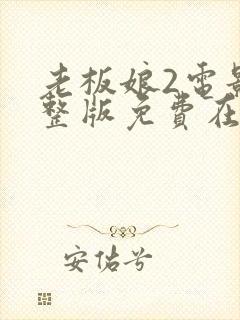 老板娘2電影
整版免費在
安估兮